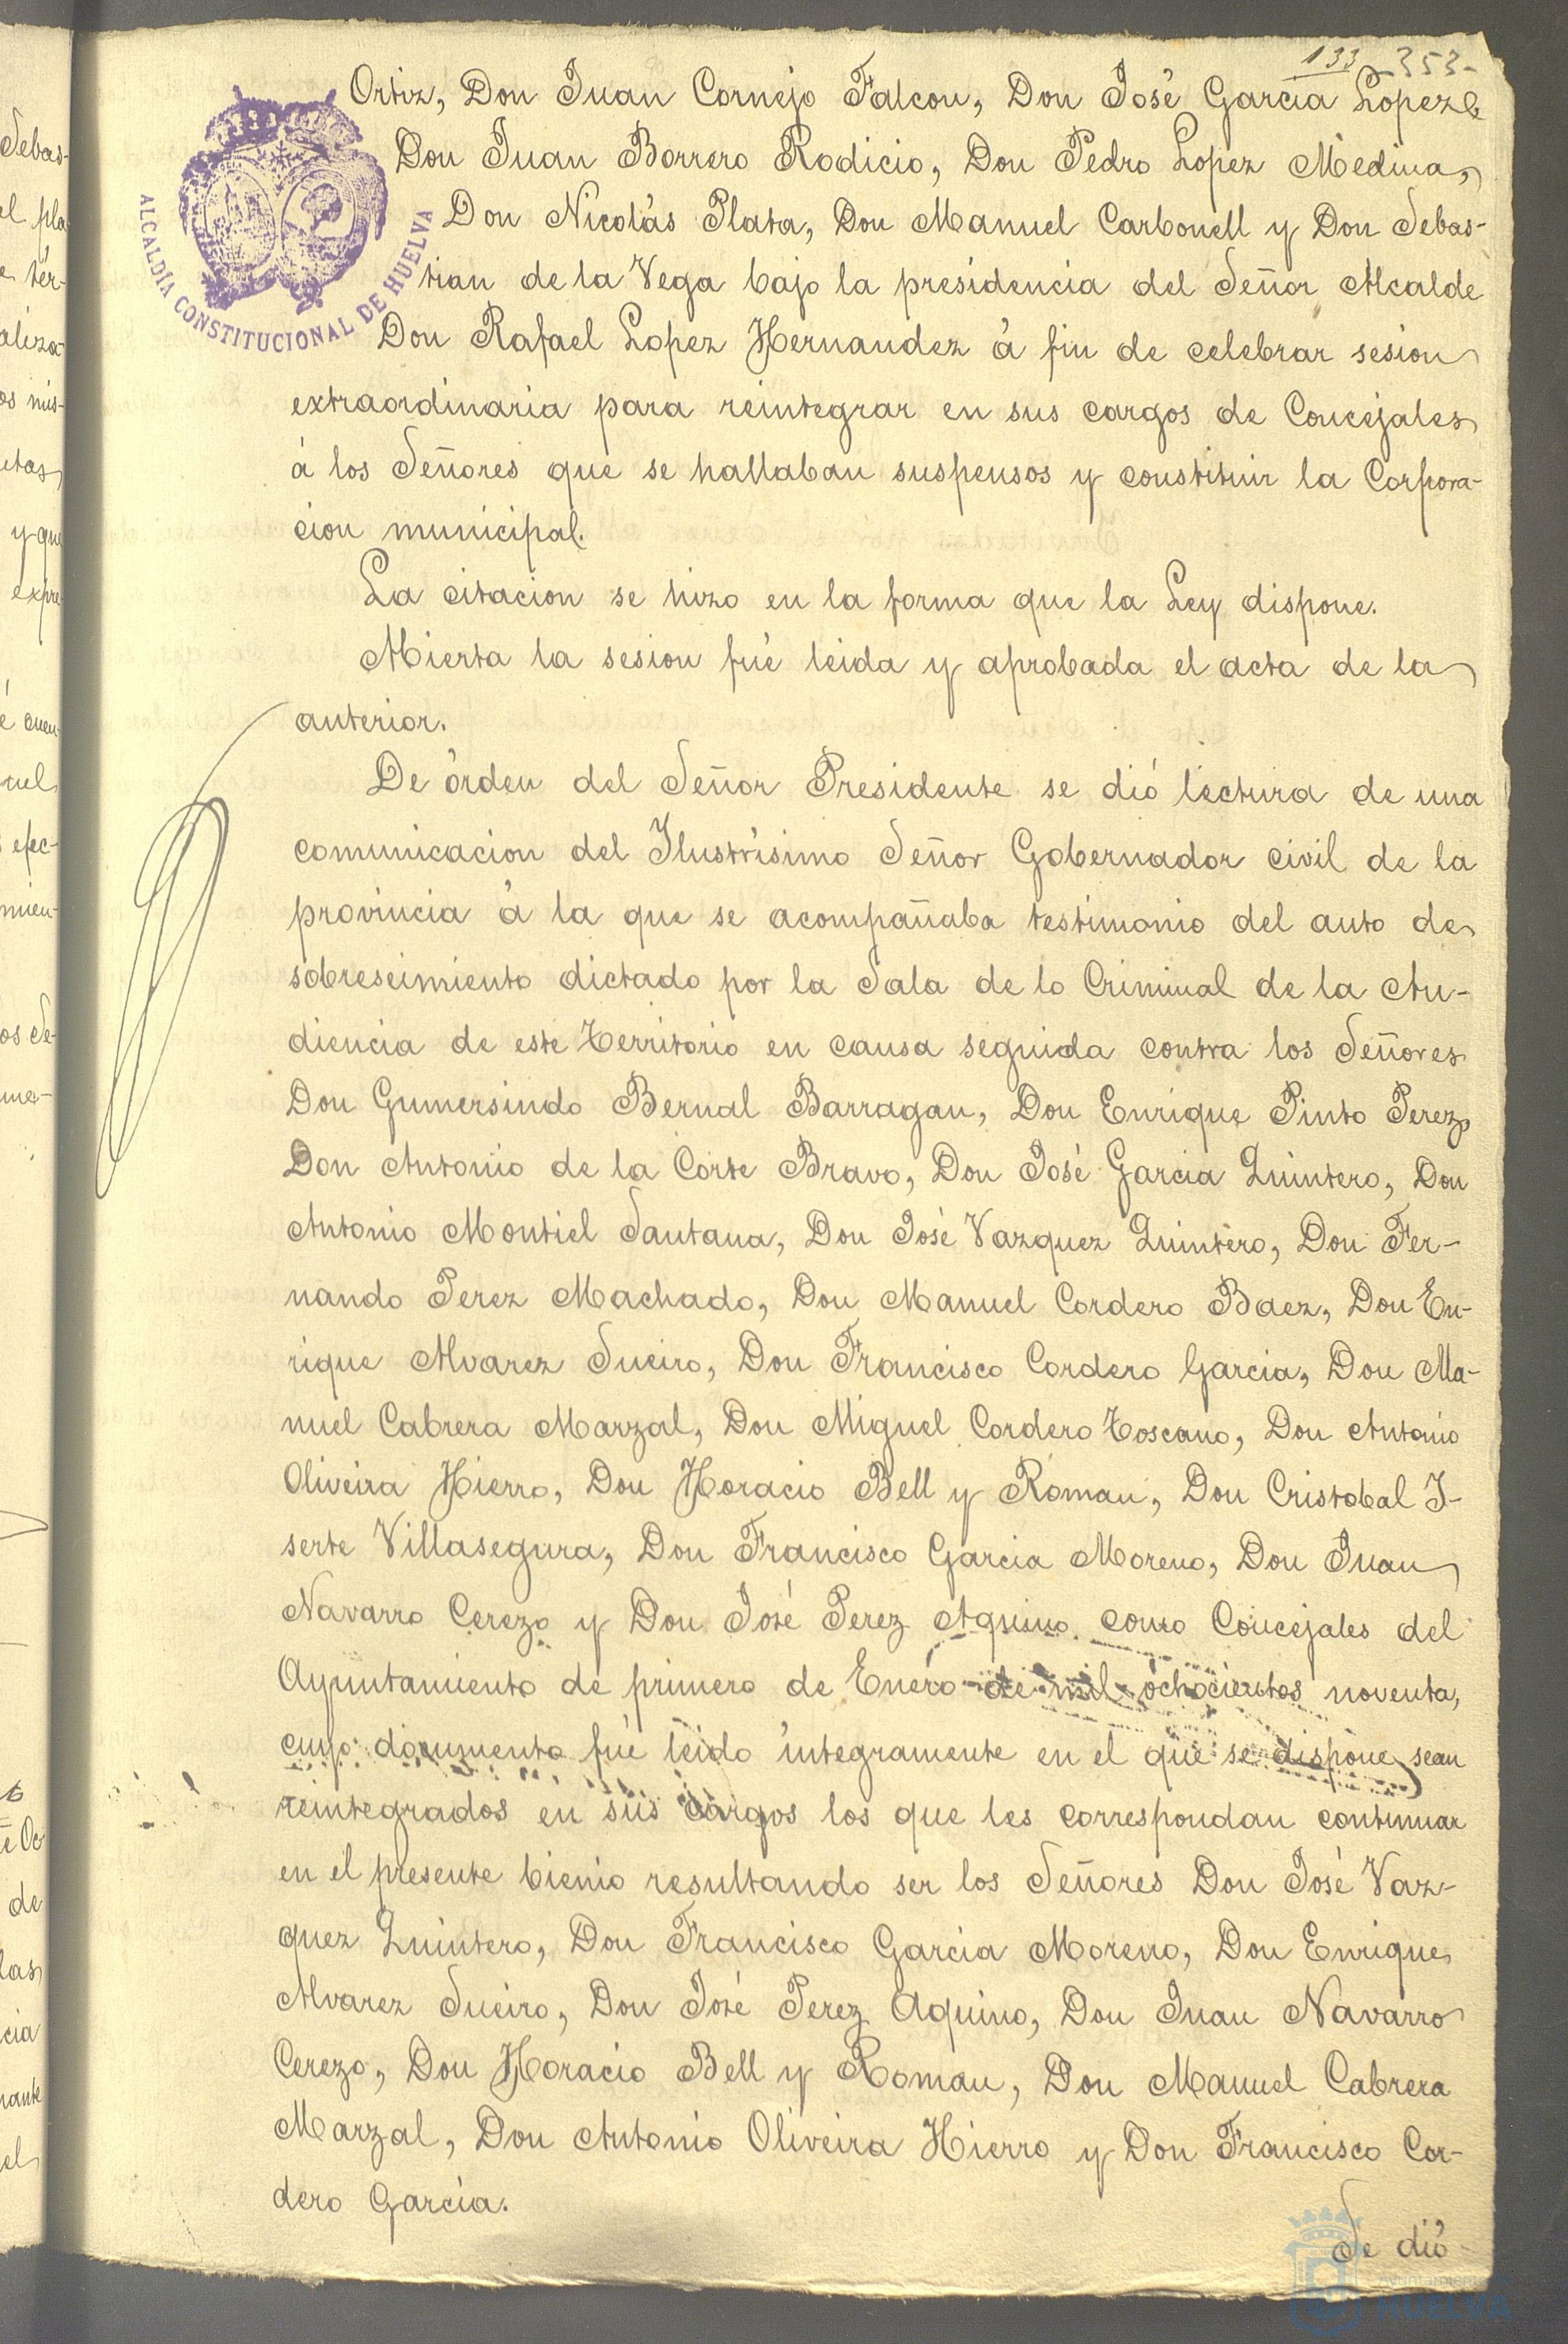 133 -353-
Ortiz, Don Juan Cornejo Falcon, Don José Garcia Lopez
Don Juan Borrero Rodicio, Don Pedro Lopez Medina,
Don Nicolás Plata, Don Manuel Carbonell y Don Sebas-
tian de la Vega bajo la presidencia del Señor Alcalde
Don Rafael Lopez Hernandez á fin de celebrar sesion
extraordinaria para reintegrar en sus cargos de Concejales
á los Señores que se hallaban suspensos y constituir la Corpora-
cion municipal.
La citacion se hizo en la forma que la Ley dispone.
Abierta la sesion fué leida y aprobada el acta de la
anterior.
De órden del Señor Presidente se dió lectura de una
comunicacion del Ilustrisimo Señor Gobernador civil de la
provincia á la que se acompañaba testimonio del auto de
sobreseimiento dictado por la Sala de lo Criminal de la Au-
diencia de este Territorio en causa seguida contra los Señores
Don Gumersindo Bernal Barragan, Don Enrique Pinto Perez,
Don Antonio de la Corte Bravo, Don José Garcia Quintero, Don
Antonio Montiel Santana, Don José Vazquez Quintero, Don Fer-
nando Perez Machado, Don Manuel Cordero Baez, Don En-
rique Alvarez Sueiro, Don Francisco Cordero Garcia, Don Ma-
nuel Cabrera Marzal, Don Miguel Cordero Toscano, Don Antonio
Oliveira Hierro, Don Horacio Bell y Roman, Don Cristobal I-
serte Villasegura, Don Francisco Garcia Moreno, Don Juan
Navarro Cerezo y Don José Perez Aquino como Concejales del
Ayuntamiento de primero de Enero de mil ochocientos noventa,
cuyo documento fué leido íntegramente en el que se dispone sean
reintegrados en sus cargos los que les correspondan continuar
en el presente bienio resultando ser los Señores Don José Vaz-
quez Quintero, Don Francisco Garcia Moreno, Don Enrique
Alvarez Sueiro, Don José Perez Aquino, Don Juan Navarro
Cerezo, Don Horacio Bell y Roman, Don Manuel Cabrera
Marzal, Don Antonio Oliveira Hierro y Don Francisco Cor-
dero Garcia.
Se dió
ALCALDÍA CONSTITUCIONAL DE HUELVA
Ayuntamiento
HUELVA